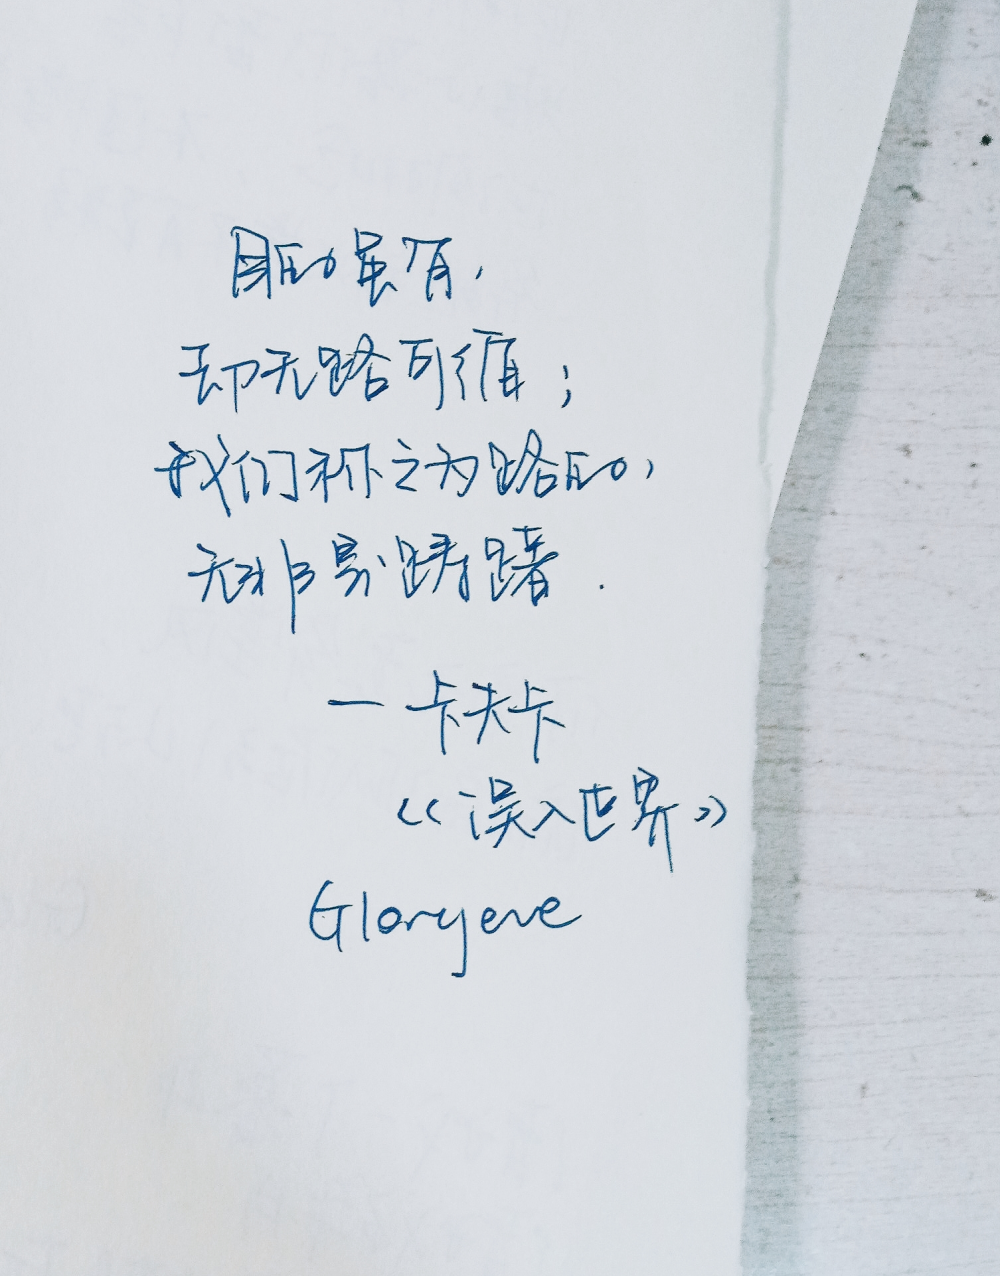 目的虽有,
却无路可循;
我们称之为路的,
无非是踌躇.
一卡夫卡
《误入世界》
Gloryeve